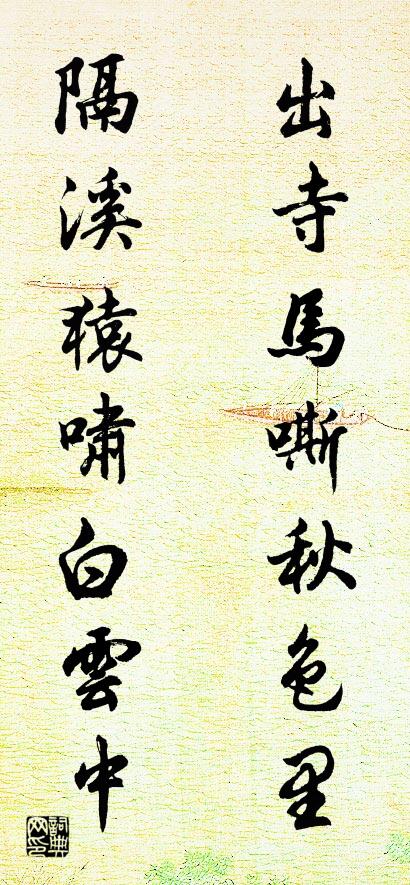 出寺馬嘶秋色里
隔溪猿嘯白雲中
詞典網印